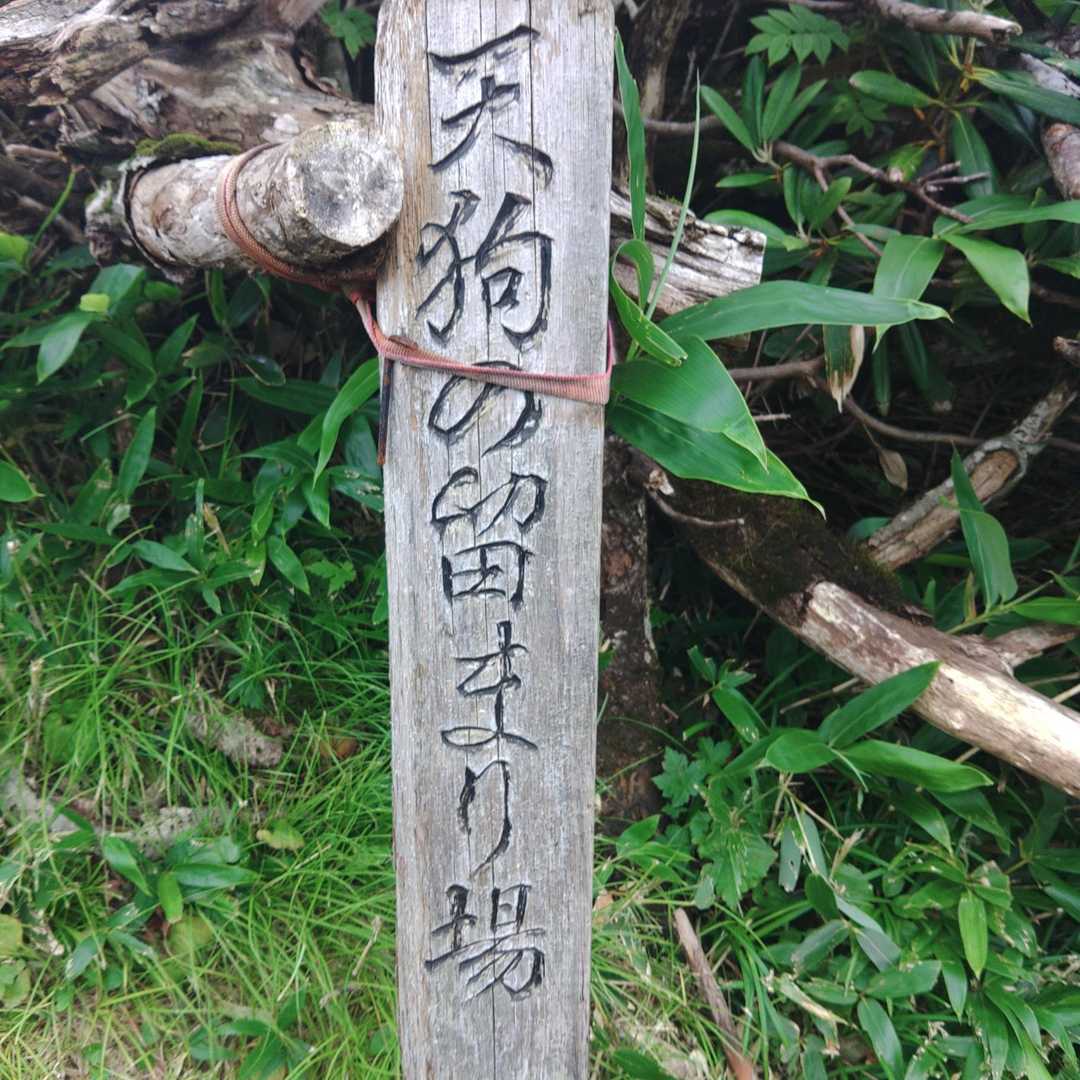 天狗の留まり場